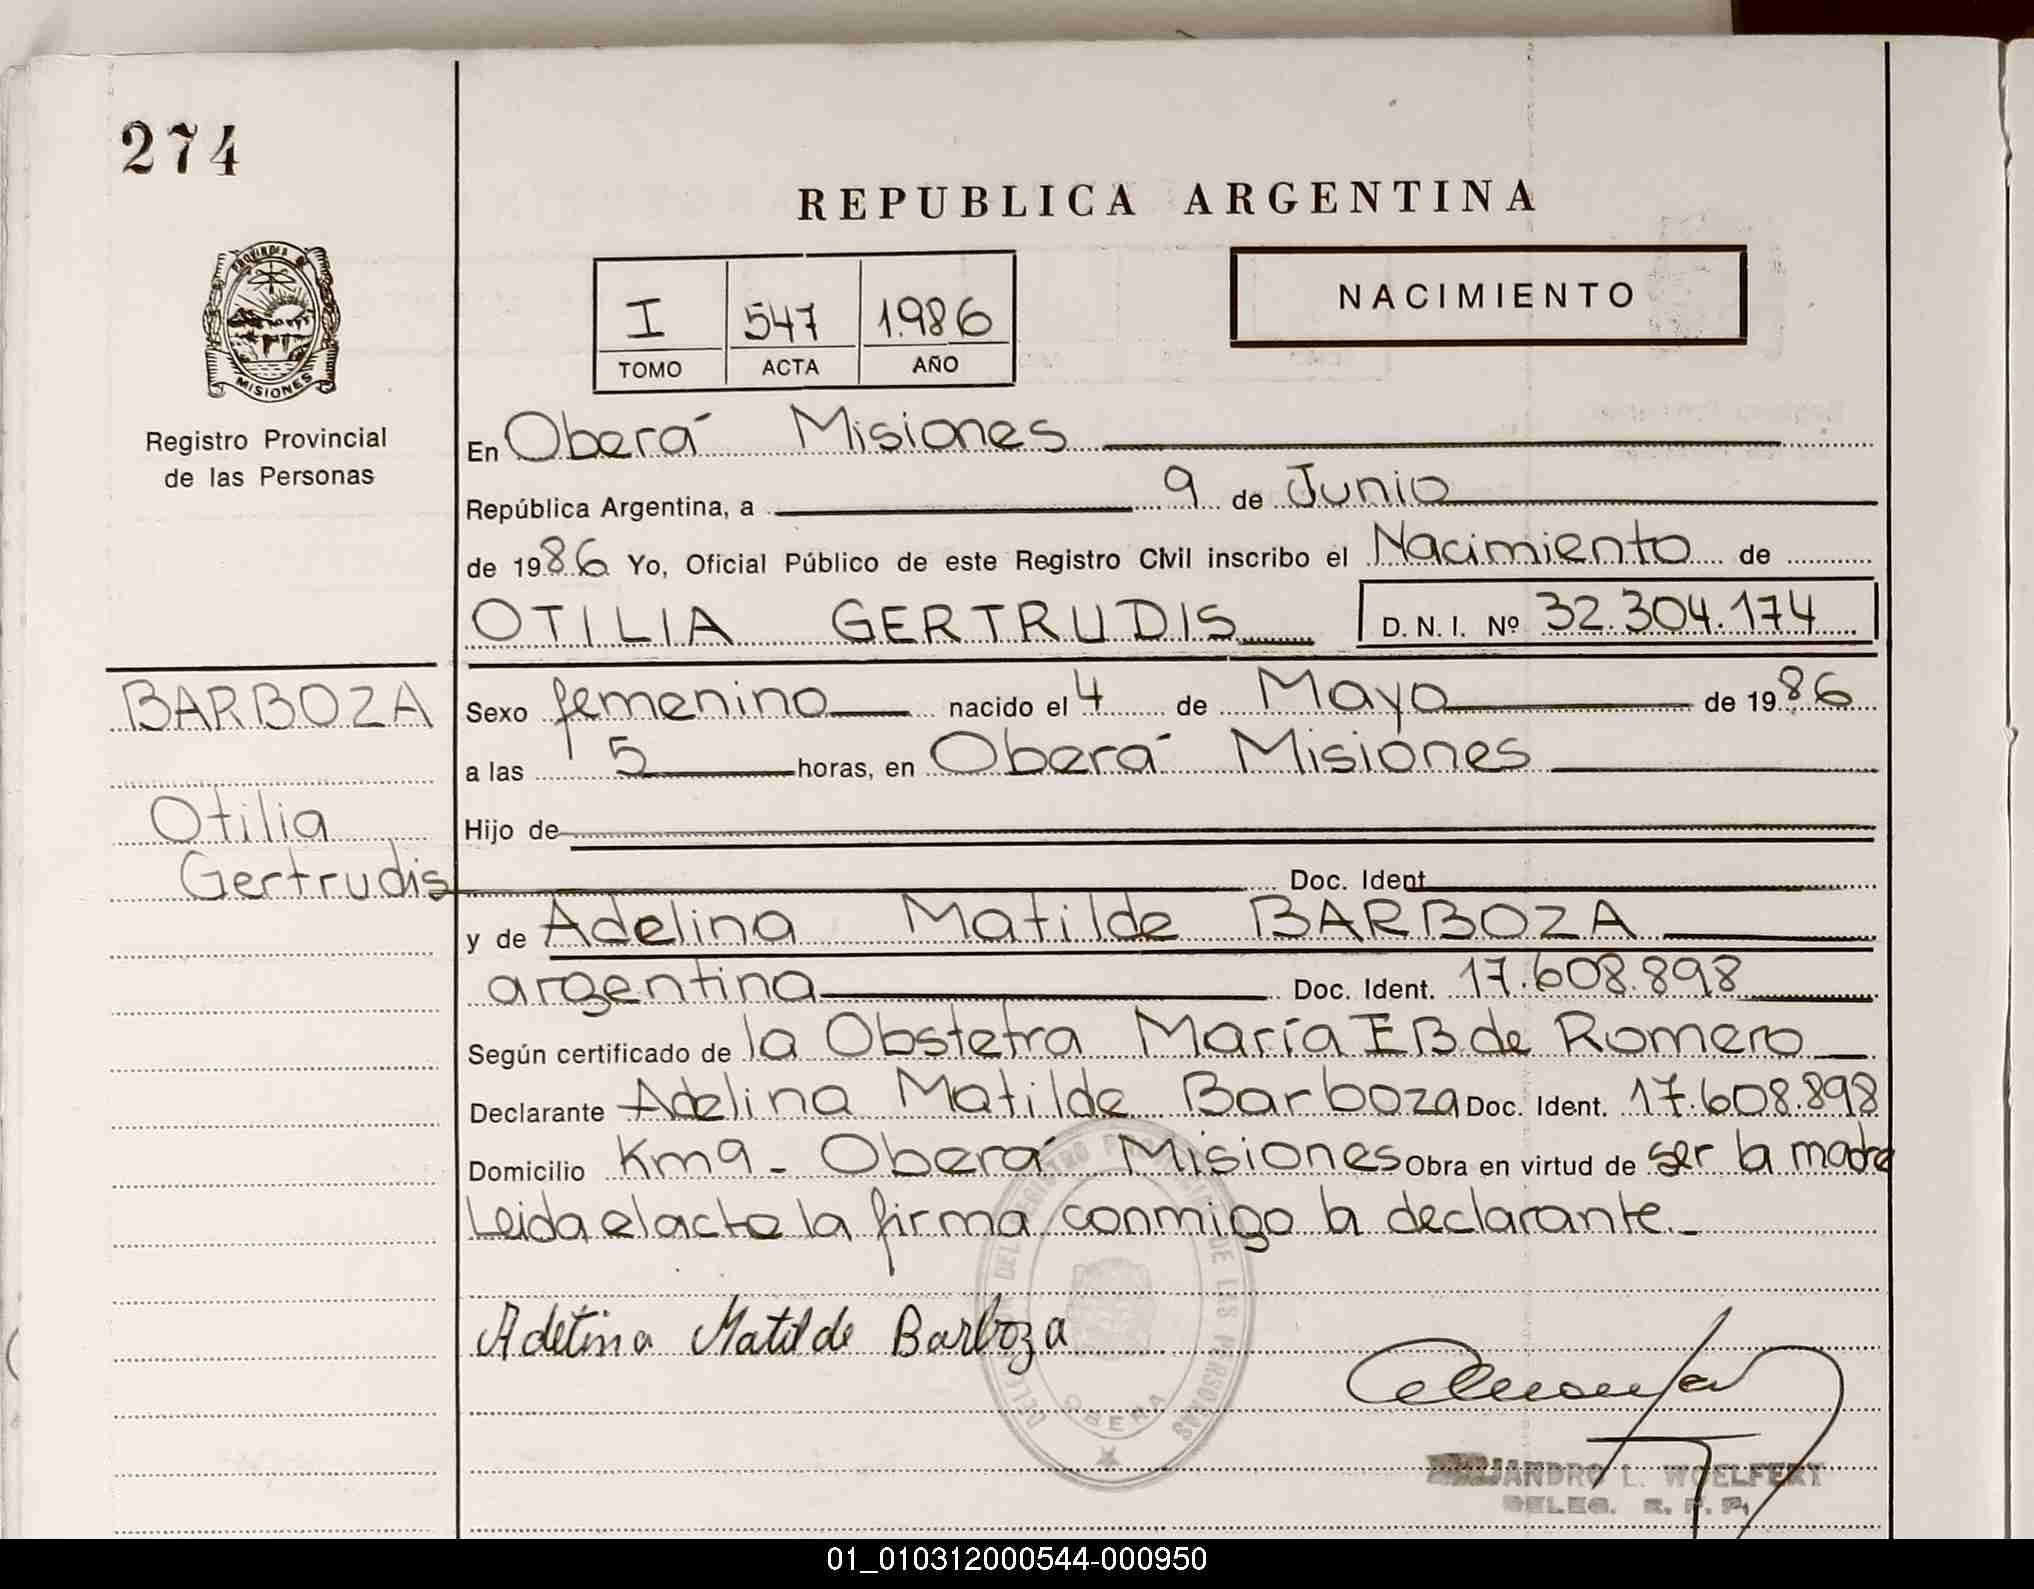 274
REPUBLICA ARGENTINA
PROVINCIA DE
MISIONES
Registro Provincial
de las Personas
I 547 1.986
TOMO ACTA AÑO
NACIMIENTO
En Oberá Misiones
República Argentina, a 9 de Junio
de 1986 Yo, Oficial Público de este Registro Civil inscribo el Nacimiento de
OTILIA GERTRUDIS D. N. I. Nº 32.304.174
BARBOZA
Otilia
Gertrudis
Sexo femenino nacido el 4 de Mayo de 1986
a las 5 horas, en Oberá Misiones
Hijo de
Doc. Ident
y de Adelina Matilde BARBOZA
argentina Doc. Ident. 17.608.898
Según certificado de la Obstetra María E B. de Romero
Declarante Adelina Matilde Barboza Doc. Ident. 17.608.898
Domicilio Km 9 - Oberá Misiones Obra en virtud de ser la madre
Leida el acta la firma conmigo la declarante.-
Adelina Matilde Barboza
DEL REGISTRO DE LAS PERSONAS
OBERA
JANDRO L. WOELFERT
DELEG. R. P. P.
01_010312000544-000950